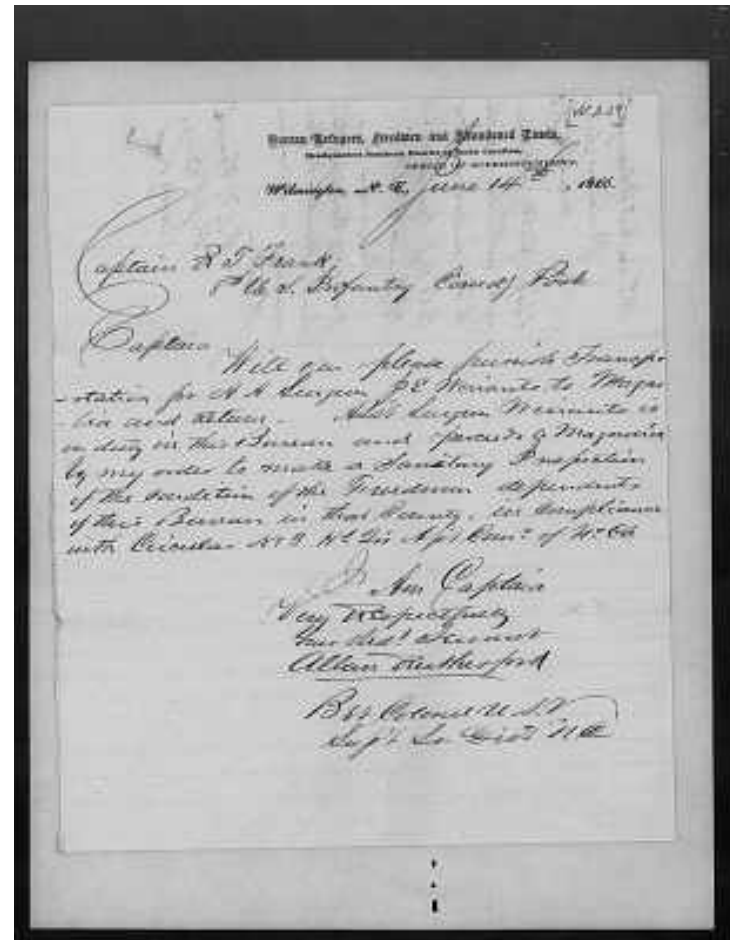 Bureau Refugees, Freedmen and Abandoned Lands,
Wilmington, N. C., June 14th, 1866.
Captain R T Frank
U. S. Infantry Comdg Post
Captain
Will you please furnish Transpo-
-rtation for A A Surgeon J E to Magno-
-lia and return. Surgeon is
on duty in this Bureau and proceeds to Magnolia
by my order to make a Sanitary Inspection
of the condition of the Freedmen dependents
of this Bureau in that County, in compliance
with Circular
I Am Captain
Very Respectfully
Your Obdt Servant
Allan Rutherford
Bvt Colonel U.S.V
Supt So Dist N C